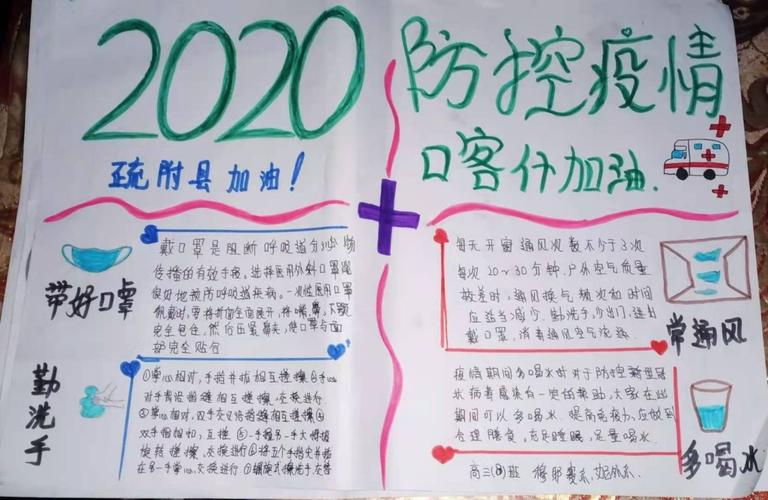 2020
疏附县加油!
防控疫情
喀什加油.
带好口罩
戴口罩是阻断呼吸道分泌物
传播的有效手段,选择医用外科口罩能
很好地预防呼吸道疾病。一次性医用口罩
佩戴时,要将折面全面展开,将嘴,鼻,下颚
完全包住,然后压紧鼻夹,使口罩与面
部完全贴合
勤洗手
①掌心相对,手指并拢相互搓擦②手心
对手背沿指缝相互搓擦,交换进行
③掌心相对,双手交叉沿指缝相互搓擦④
双手指相扣,互搓⑤一手握另一手大拇指
旋转搓擦,交换进行⑥将五个手指尖并拢
在另一手掌心,交换进行⑦螺旋式擦洗手
常通风
每天开窗通风次数不少于3次
每次20~30分钟.户外空气质量
较差时,通风换气频次和时间
应适当减少,勤洗手,少出门,进出
戴口罩,消毒通风空气流
多喝水
疫情期间多喝水对于防控新型冠
状病毒感染有一定的帮助,大家在此
期间可以多喝水.提高免疫力,应做到
合理膳食,充足睡眠,足量喝水.
高三(8)班